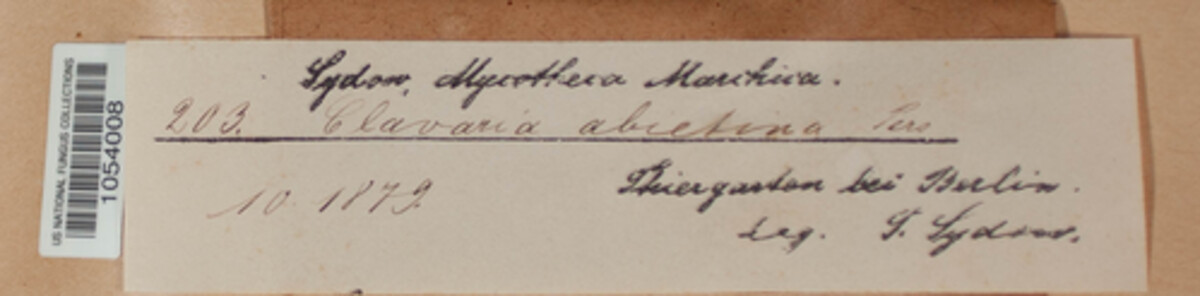 US NATIONAL FUNGUS COLLECTIONS
1054008
Sydow, Mycotheca Marchica.
203. Clavaria abietina Pers
10. 1879.
Thiergarten bei Berlin.
Leg. P. Sydow.